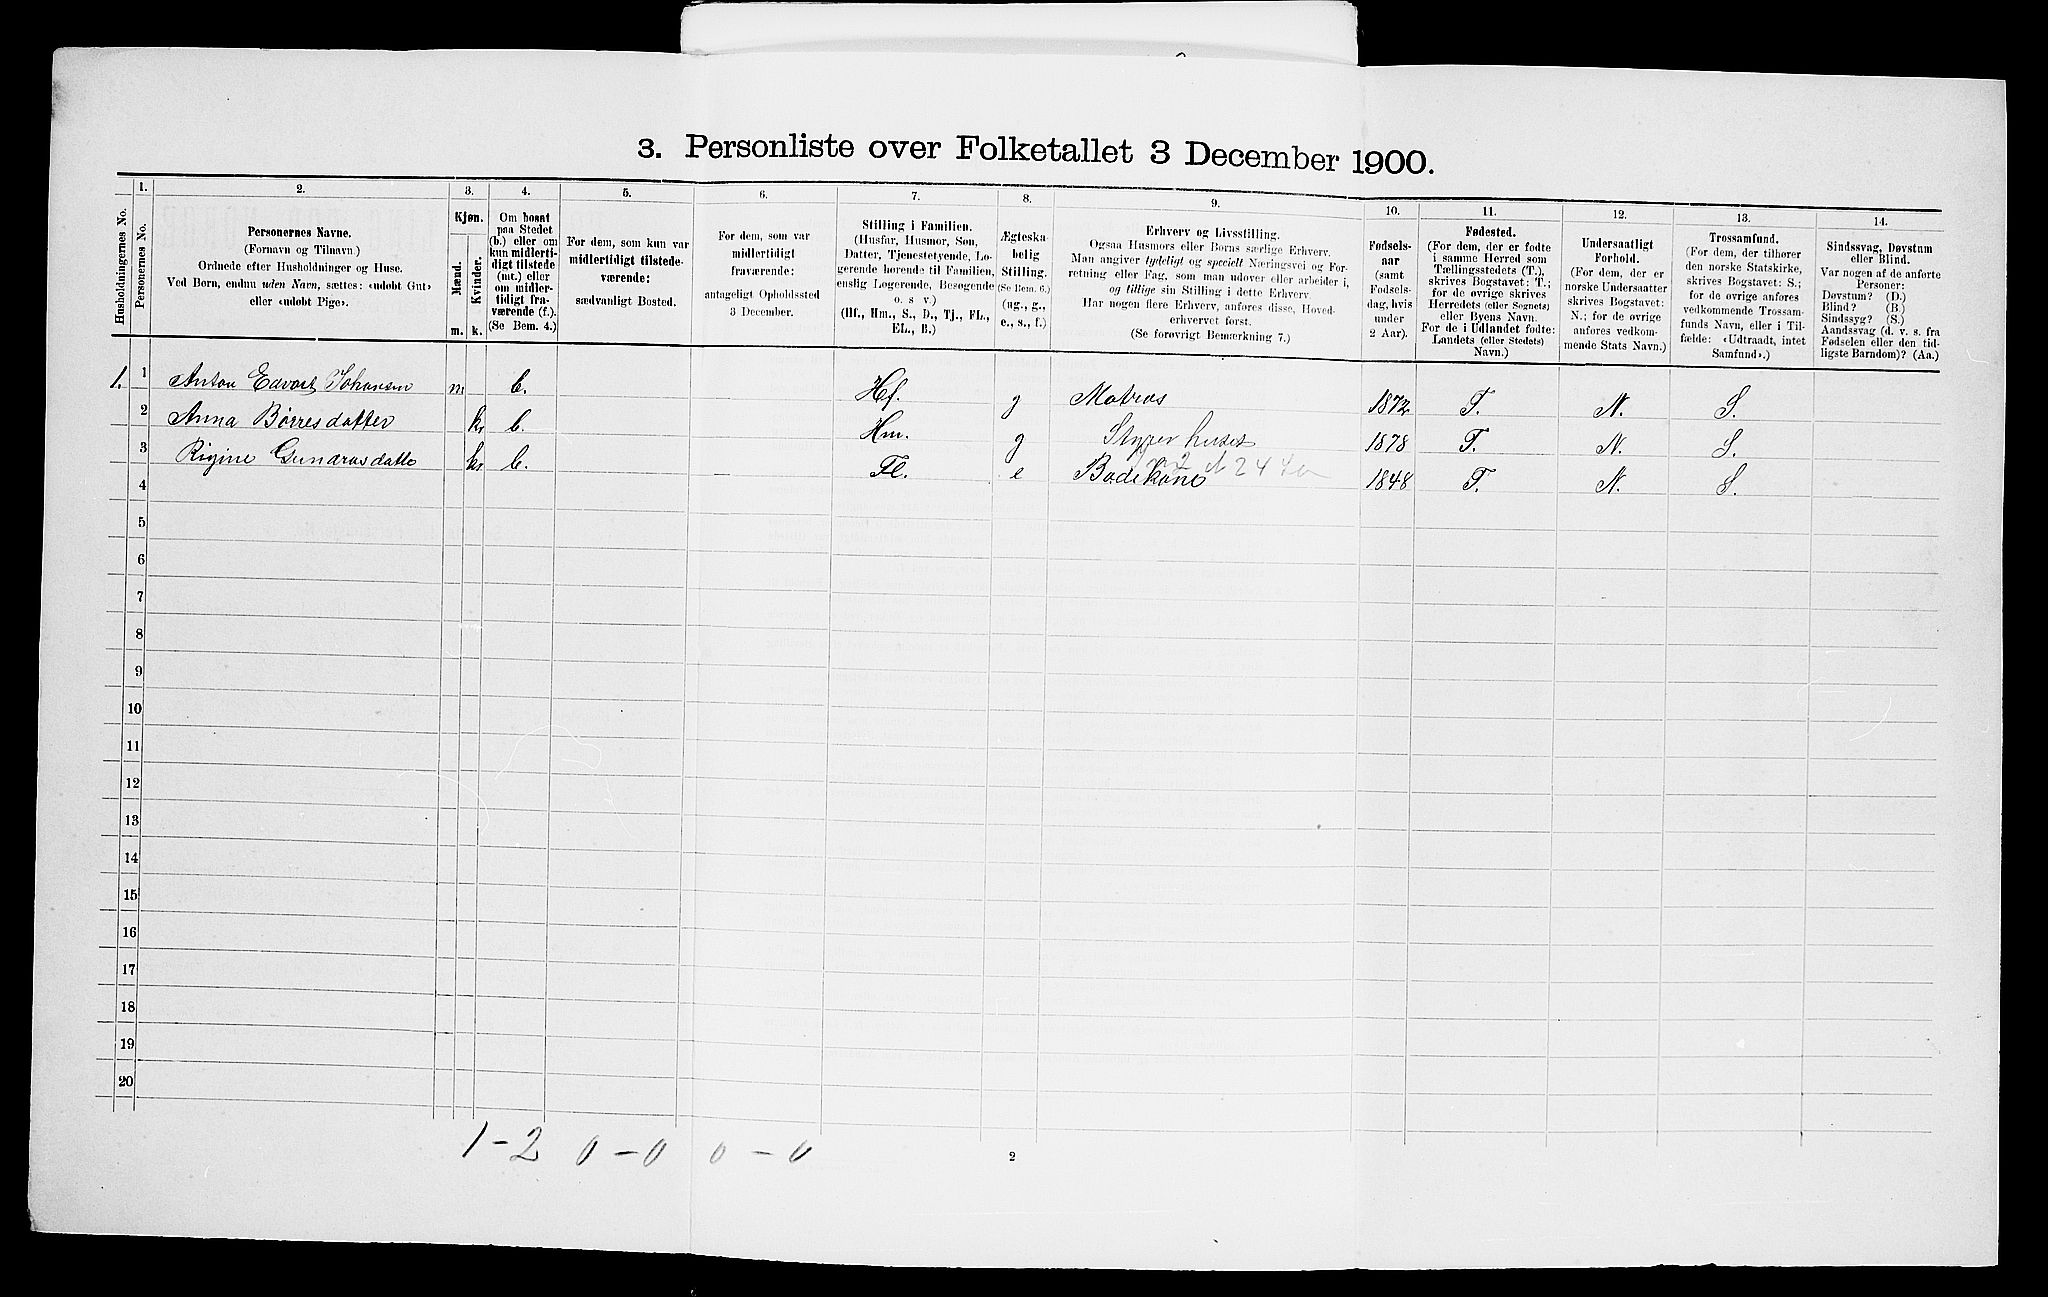 3. Personliste over Folketallet 3 December 1900.
1. 2. 3. 4. 5. 6. 7. 8. 9. 10. 11. 12. 13. 14.
Husholdningernes No.
Personernes No.
Personernes Navne.
(Fornavn og Tilnavn.)
Ordnede efter Husholdninger og Huse.
Ved Børn, endnu uden Navn, sættes: «udøbt Gut»
eller «udøbt Pige».
Kjøn.
Mænd.
Kvinder.
m. k.
Om bosat
paa Stedet
(b.) eller om
kun midlerti-
digt tilstede
(mt.) eller
om midler-
tidigt fra-
værende (f.).
(Se Bem. 4.)
For dem, som kun var
midlertidigt tilstede-
værende:
sædvanligt Bosted.
For dem, som var
midlertidigt
fraværende:
antageligt Opholdssted
3 December.
Stilling i Familien.
(Husfar, Husmor, Søn,
Datter, Tjenestetyende, Lo-
gerende hørende til Familien,
enslig Logerende, Besøgende
o. s v.)
(Hf., Hm., S., D., Tj., FL.,
EL., B.)
Ægteska-
belig
Stilling.
(Se Bem. 6.)
(ug., g.,
e., s., f.)
Erhverv og Livsstilling.
Ogsaa Husmors eller Børns særlige Erhverv.
Man angiver tydeligt og specielt Næringsvei og For-
retning eller Fag, som man udøver eller arbeider i,
og tillige sin Stilling i dette Erhverv.
Har nogen flere Erhverv, anføres disse, Hoved-
erhvervet først.
(Se forøvrigt Bemærkning 7.)
Fødsels-
aar
(samt
Fødsels-
dag, hvis
under
2 Aar).
Fødested.
(For dem, der er fødte
i samme Herred som
Tællingsstedets (T.),
skrives Bogstavet: T.;
for de øvrige skrives
Herredets (eller Sognets)
eller Byens Navn.
For de i Udlandet fødte:
Landets (eller Stedets)
Navn.)
Undersaatligt
Forhold.
(For dem, der er
norske Undersaatter
skrives Bogstavet:
N.; for de øvrige
anføres vedkom-
mende Stats Navn.)
Trossamfund.
(For dem, der tilhører
den norske Statskirke,
skrives Bogstavet: S.;
for de øvrige anføres
vedkommende Trossam-
funds Navn, eller i Til-
fælde: «Udtraadt, intet
Samfund».)
Sindssvag, Døvstum
eller Blind.
Var nogen af de anførte
Personer:
Døvstum? (D.)
Blind? (B.)
Sindssyg? (S.)
Aandssvag (d. v. s. fra
Fødselen eller den tid-
ligste Barndom)? (Aa.)
1. 1 Anton Edvart Johansen m b. Hf. g Matros 1872 T. N. S.
2 Anna Børresdatter k b. Hm. g Styrer huset 1878 T. N. S.
3 Rigine Gundrosdatte k b. FL. e Badekone 1848 T. N. S.
4
5
6
7
8
9
10
11
12
13
14
15
16
17
18
19
20
1 - 2 0 - 0 0 - 0
2